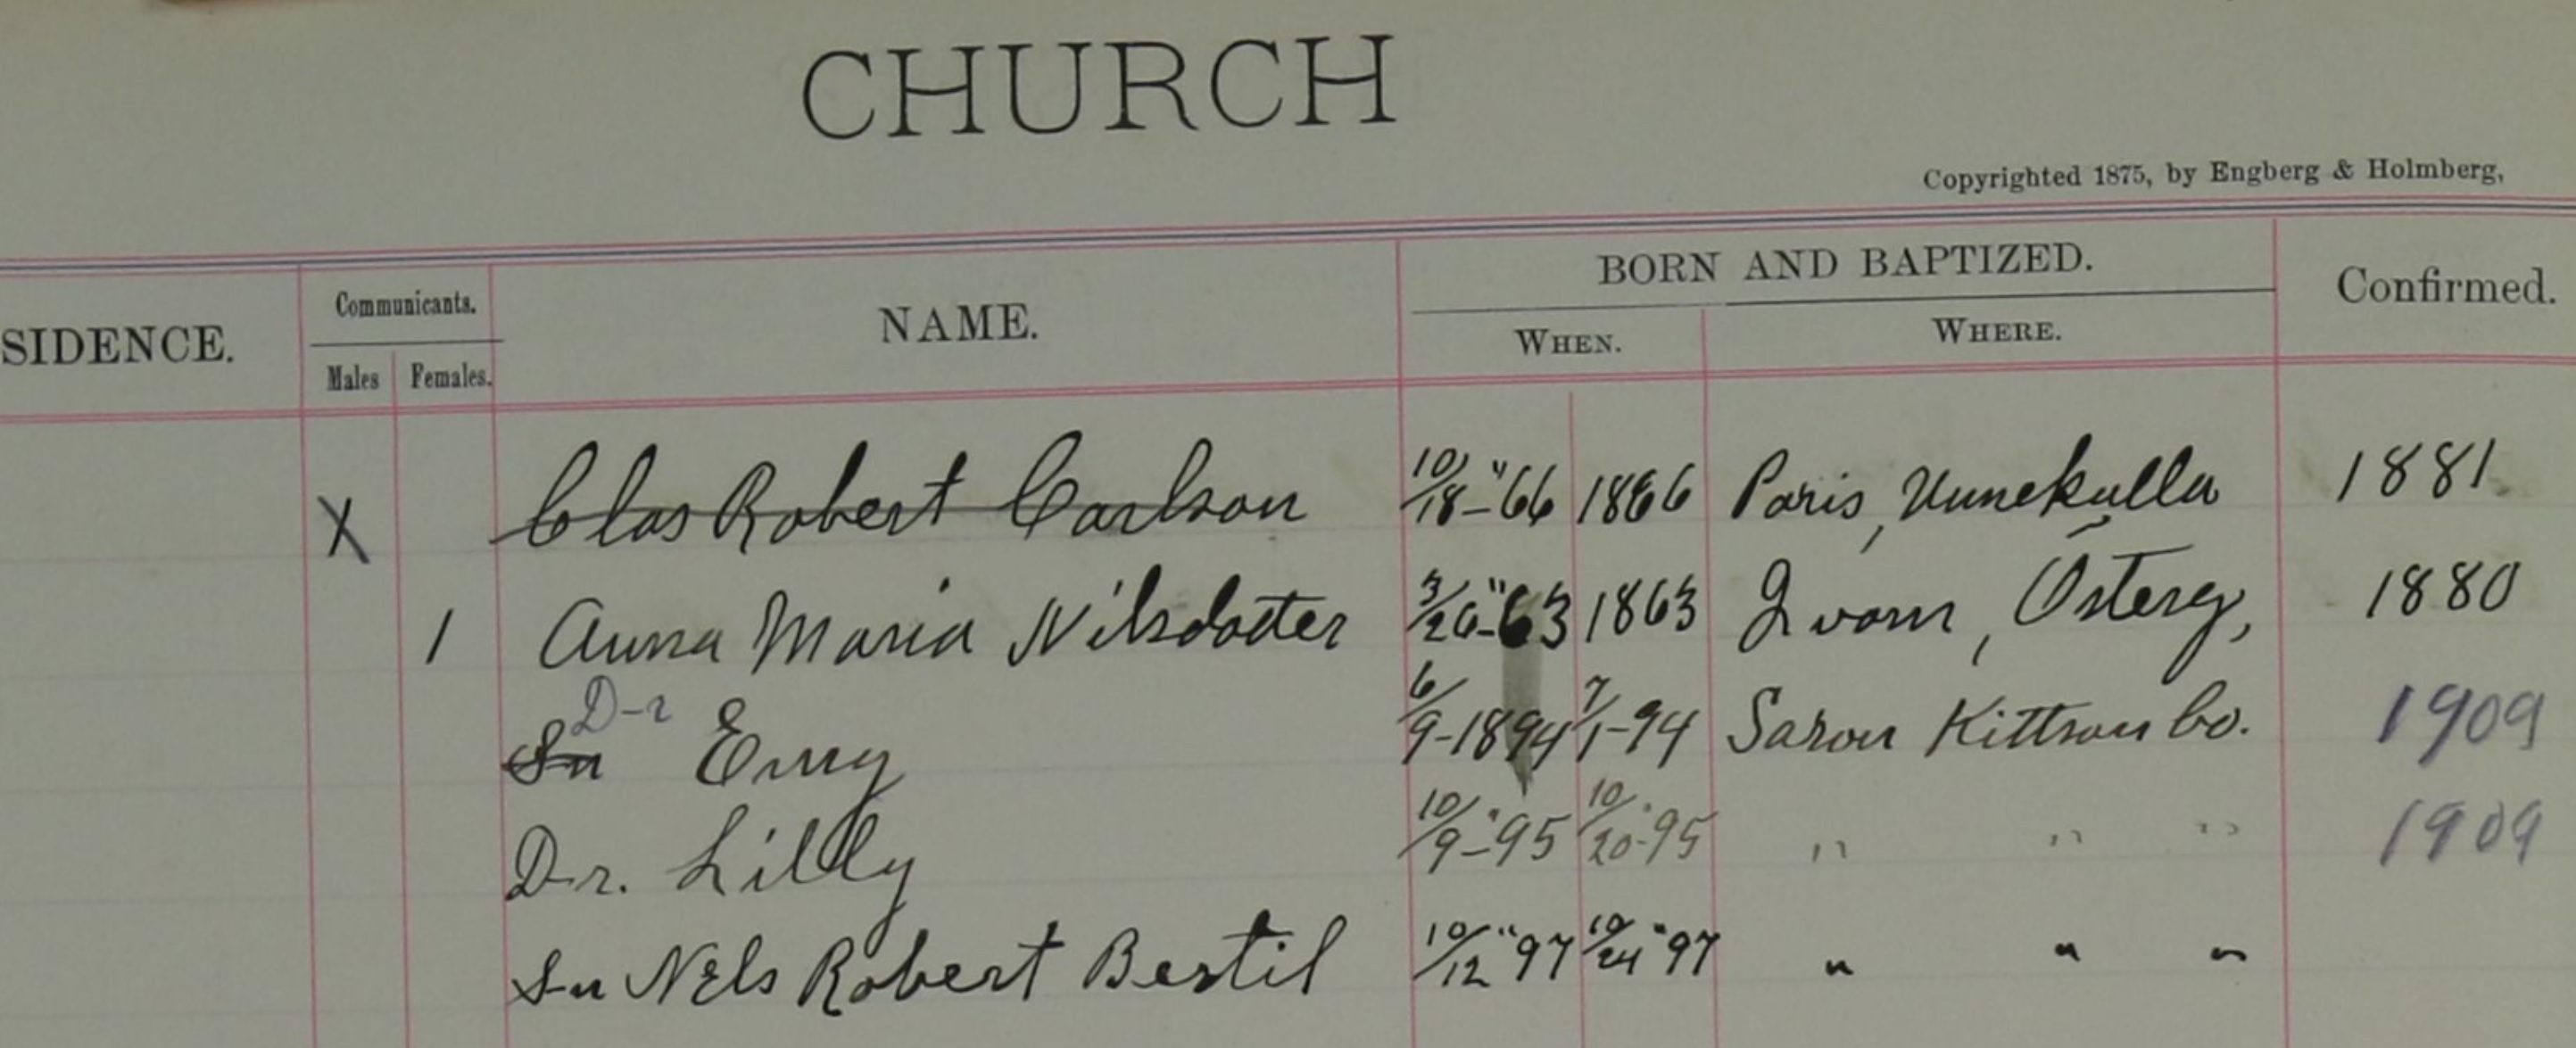 CHURCH
Copyrighted 1875, by Engberg & Holmberg,
SIDENCE. Communicants. NAME. BORN AND BAPTIZED. Confirmed.
Males Females. WHEN. WHERE.
X Clas Robert Carlson 10/18-"66 1866 Paris, 1881
1 Anna Maria Nilsdotter 3/26-"63 1863 Österg, 1880
Sn D-r Emy 6/9-1894 7/1-94 Saron Kittson Co. 1909
D-r. Lilly 10/9-"95 10/20-95 " " " 1909
Sn Nels Robert Bertil 10/12"97 10/24"97 " " "